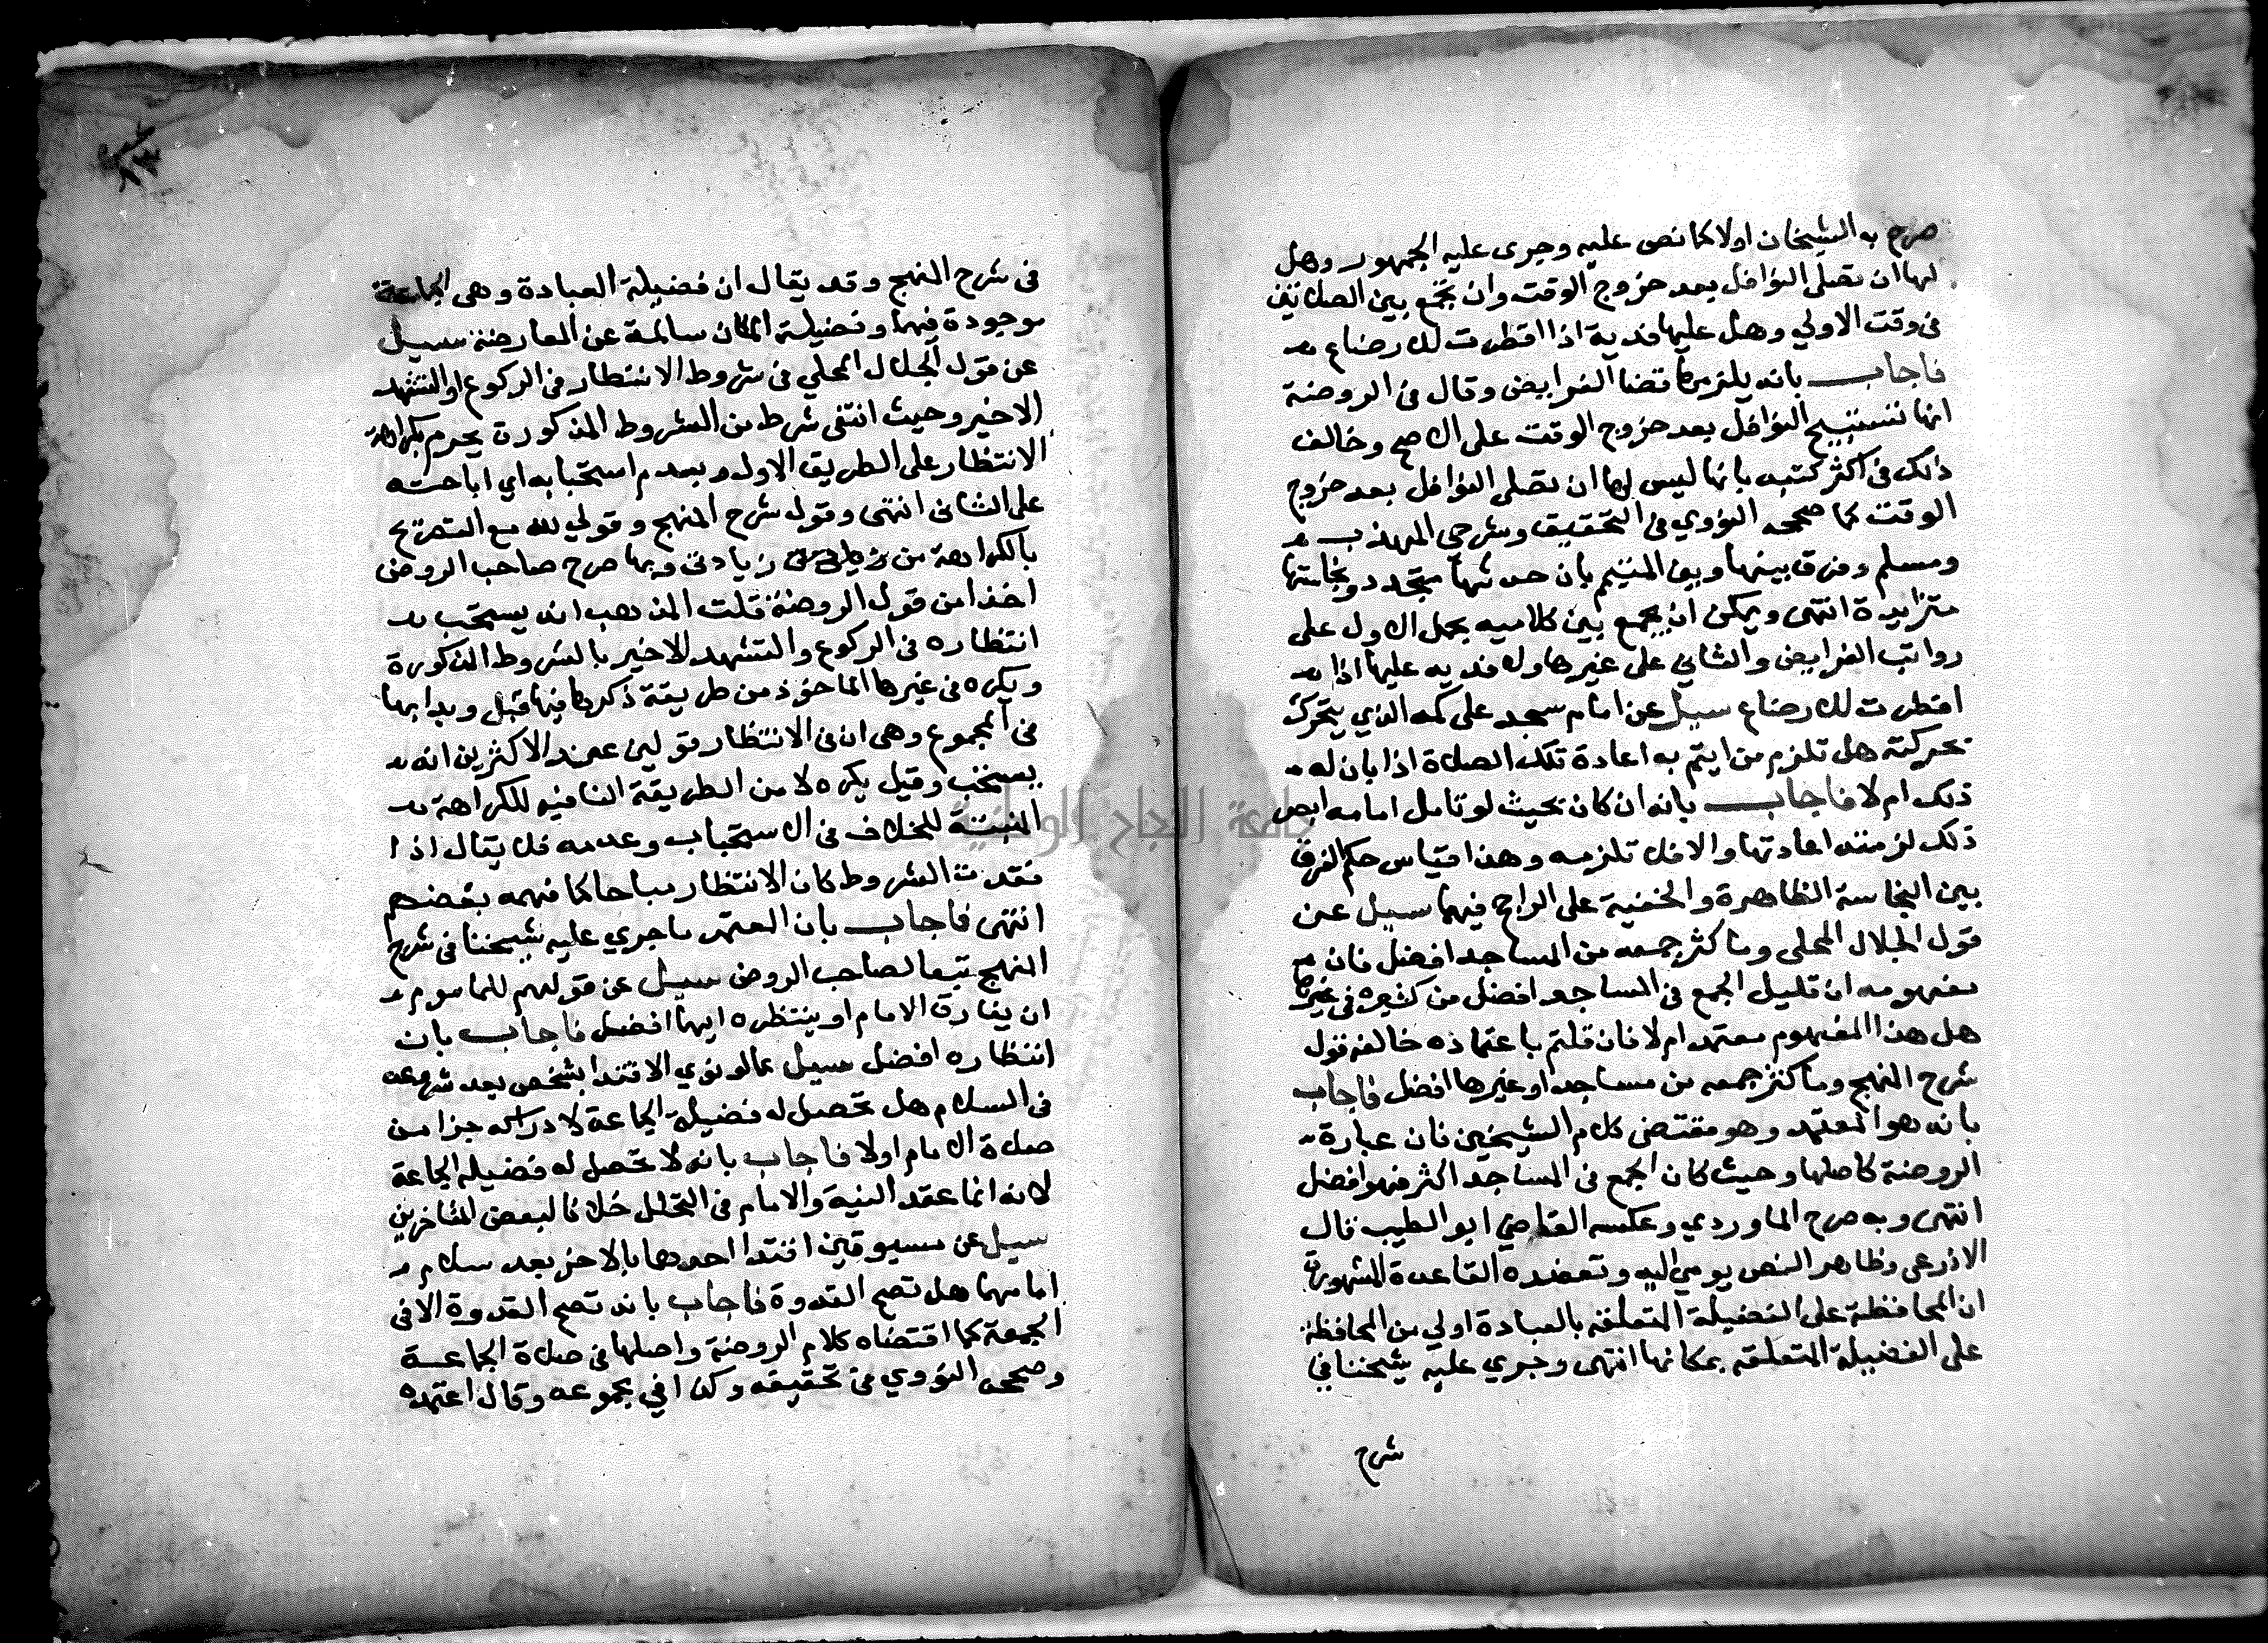 صرح به الشيخان اولا كما نص عليه وجرى عليه الجمهور وهل
لها ان تصلى النوافل بعد خروج الوقت وان تجمع بين الصلاتين
فى وقت الاولي وهل عليها فدية اذا افطرت للارضاع
فاجاب بانه يلزمها قضا الفرايض وقال فى الروضة
انها تستبيح النوافل بعد خروج الوقت على الاصح وخالف
ذلك فى اكثر كتبه بانها ليس لها ان تصلى النوافل بعد خروج
الوقت كما صححه النووي فى التحقيق وشرحى المهذب
ومسلم وفرق بينها وبين المتيمم بان حدثها متجدد ونجاستها
متزايدة انتهى ويمكن ان يجمع بين كلاميه بحمل الاول على
رواتب الفرايض والثاني على غيرها ولا فديه عليها اذا
افطرت للارضاع سيل عن امام سجد على كمه الذي يتحرك
بحركته هل تلزم من ايتم به اعادة تلك الصلاة اذا بان له
ذلك ام لا فاجاب بانه ان كان بحيث لو تامل امامه ابصر
ذلك لزمته اعادتها والا فلا تلزمه وهذا قياس حكم الفرق
بين النجاسة الظاهرة والخفية على الراجح فيهما سيل عن
قول الجلال المحلى وما كثر جمعه من المساجد افضل فان
مفهومه ان قليل الجمع فى المساجد افضل من كثيره فى غيرها
هل هذا المفهوم معتمد ام لا فان قلتم باعتماده خالفه قول
شرح المنهج وما كثر جمعه من مساجد او غيرها افضل فاجاب
بانه هو المعتمد وهو مقتضى كلام الشيخين فان عبارة
الروضة كاصلها وحيث كان الجمع فى المساجد اكثر فهو افضل
انتهى وبه صرح الماوردي وعكسه القاضي ابو الطيب قال
الاذرعى وظاهر النص يومي اليه وتعضده القاعدة المشهورة
ان المحافظة على الفضيلة المتعلقة بالعبادة اولي من المحافظة
على الفضيلة المتعلقه بمكانها انتهى وجري عليه شيخنا في
شرح
فى شرح المنهج وقد يقال ان فضيلة العبادة وهى الجماعة
موجودة فيهما وفضيلة المكان سالمة عن المعارضة سيل
عن قول الجلال المحلي فى شروط الانتظار فى الركوع او التشهد
الاخير وحيث انتفى شرط من الشروط المذكورة يجزم بكراهة
الانتظار على الطريق الاول وبعدم استحبابه اي اباحته
على الثانى انتهى وقول شرح المنهج وقولي لله مع التصريح
بالكراهة من زيادتى وبها صرح صاحب الروض
اخذا من قول الروضة قلت المذهب انه يستحب
انتظاره فى الركوع والتشهد الاخير بالشروط المذكورة
ويكره فى غيرها الماخوذ من طريقة ذكرها فيها قبل وبدا بها
فى المجموع وهى ان فى الانتظار قولين عند الاكثرين انه
يستحب وقيل يكره لا من الطريقة النافيه للكراهة
المثبتة للخلاف فى الاستحباب وعدمه فلا يقال اذا
فقدت الشروط كان الانتظار مباحا كما فهمه بعضهم
انتهى فاجاب بان المعتمد ما جري عليه شيخنا فى شرح
المنهج تبعا لصاحب الروض سيل عن قولهم للماموم
ان يفارق الامام او ينتظره ايهما افضل فاجاب بان
انتظاره افضل سيل عما لو نوي الاقتدا بشخص بعد شروعه
فى السلام هل تحصل له فضيلة الجماعة لادراكه جزا من
صلاة الامام اولا فاجاب بانه لا تحصل له فضيلة الجماعة
لانه انما عقد النية والامام فى التحلل خلافا لبعض المتاخرين
سيل عن مسبوقين اقتدا احدهما بالاخر بعد سلام
امامهما هل تصح القدوة فاجاب بانه تصح القدوة الا فى
الجمعة كما اقتضاه كلام الروضة واصلها فى صلاة الجماعة
وصححه النووي فى تحقيقه وكذا في مجموعه وقال اعتمده
جامعة النجاح الوطنية